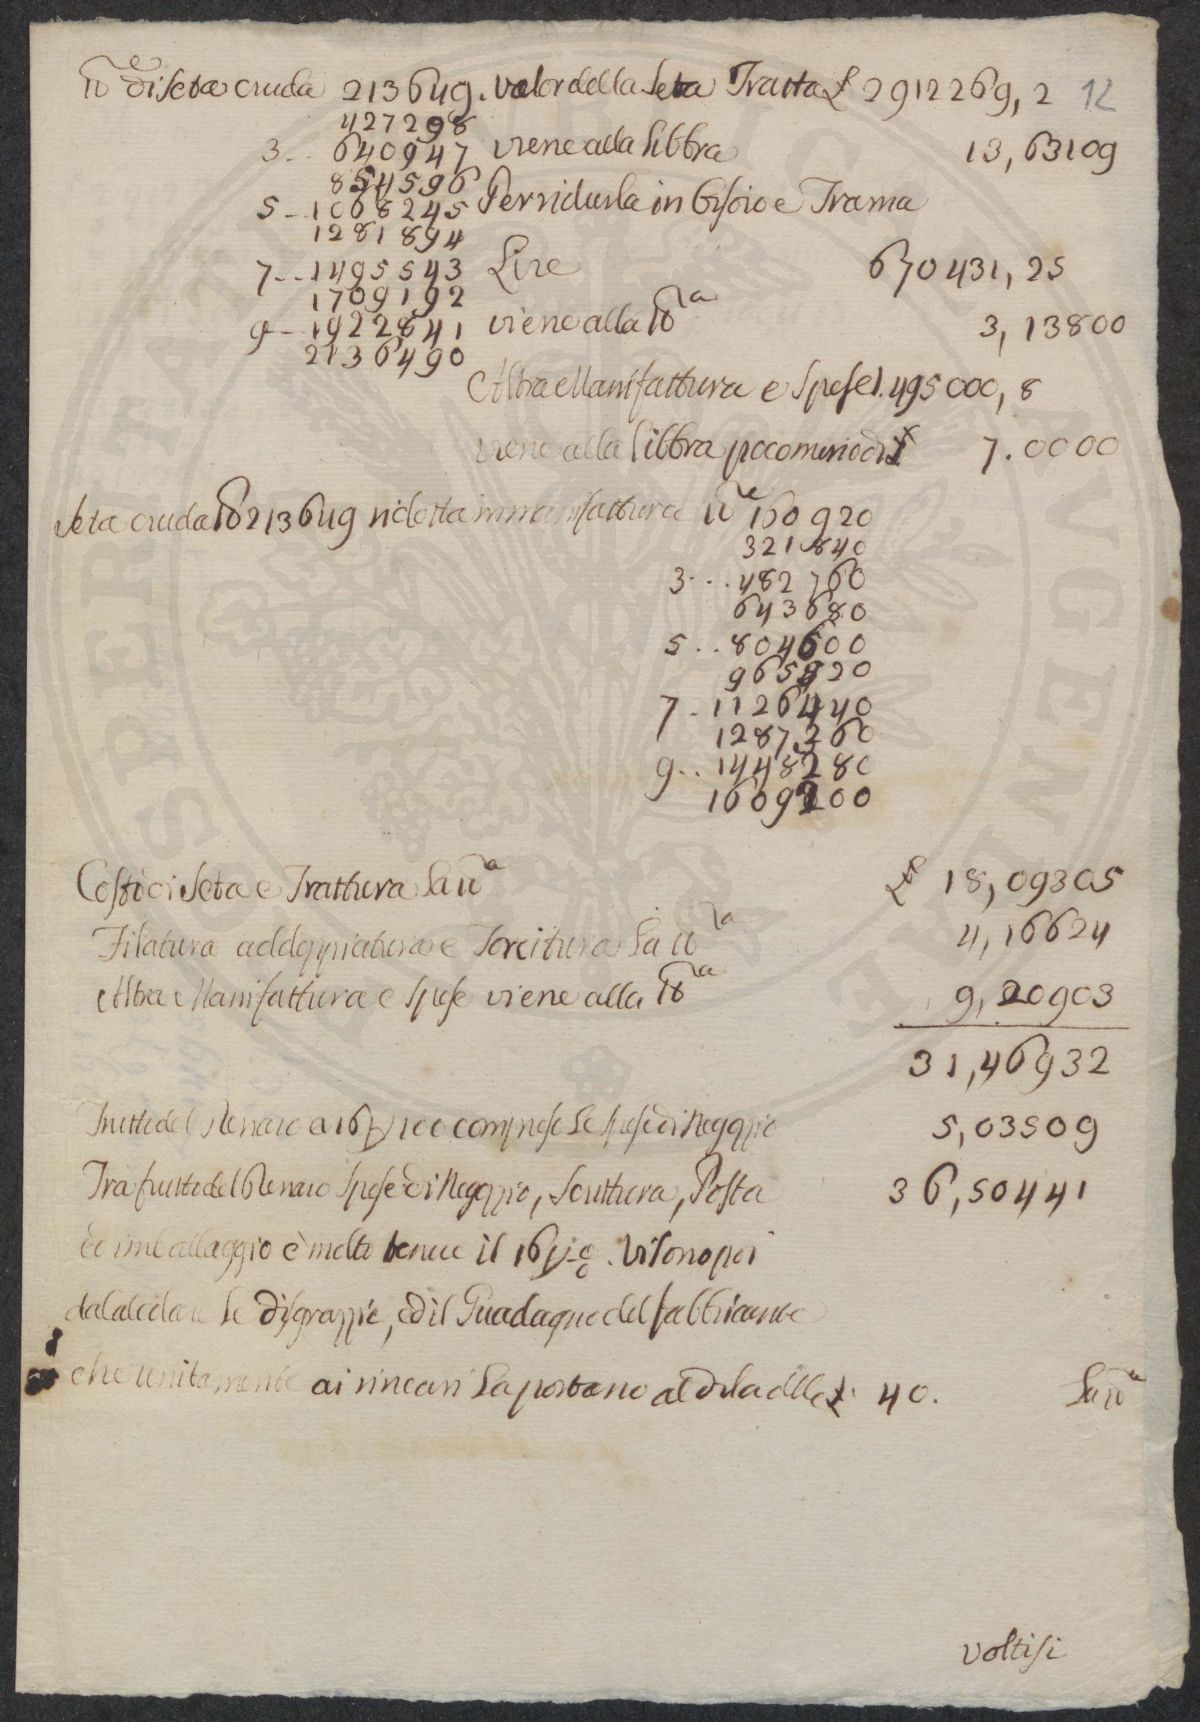 lb.e di Seta cruda 213649. valor della Seta Tratta £ 2912269, 2 12
427298
3.. 640947 viene alla libbra 13, 63109
854596
5 - 1068245 Per ridurla in Orsoio e Trama
1281894
7 - - 1495543 Lire 670431, 25
1709192
9 - 1922841 viene alla lb.a 3, 13800
2136490
Altra Manifattura e Spese l. 495000, 8
viene alla libbra poco meno di £ 7. 0000
Seta cruda lb 213649 ridotta in manifattura lb.e 160920
321840
3 . . . 482760
643680
5 . . 804600
965520
7 - 1126440
1287360
9 . . 1448280
1609200
Costo di Seta e Trattura la lb.a £ 18, 09305
Filatura addoppiatura e Torcitura la lb.a 4, 16624
Altra Manifattura e Spese viene alla lb.a 9, 20903
31, 46932
Frutto del Denaro a 16 p 100 comprese le spese di Negozio 5, 03509
Tra frutto del Denaro Spese di Negozio, Scrittura, Posta 36, 50441
ed imballaggio è molto tenue il 16 p %. Vi sono poi
da calcolare le disgrazzie, ed il Guadagno del fabbricante
che unitamente ai rincari la portano al di là delle £ 40. la lb.a
voltisi